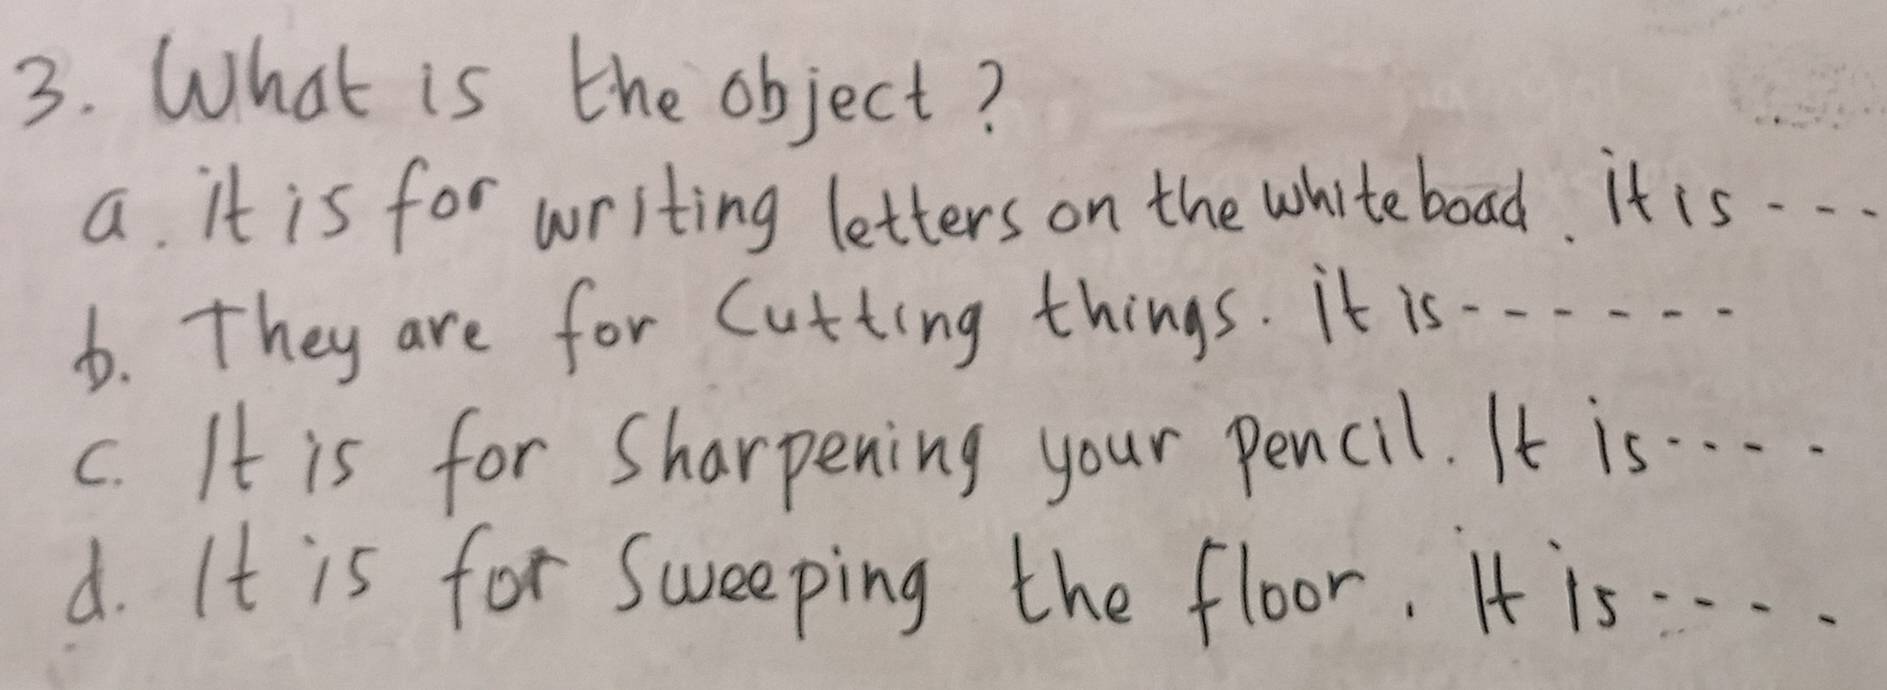 3. What is the object?
a. it is for writing letters on the whiteboad. it is ---
b. They are for Cutting things. it is ------
c. It is for Sharpening your pencil. It is ----
d. It is for Sweeping the floor. It is ----